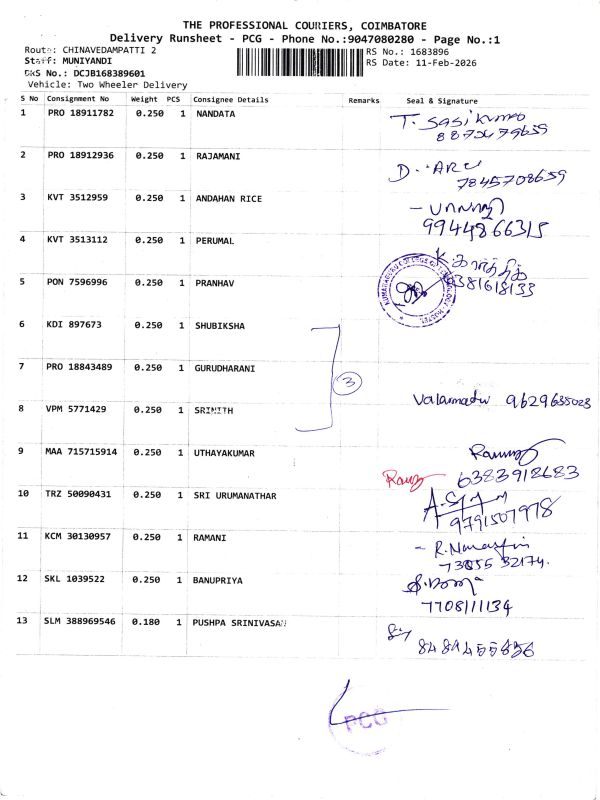 THE PROFESSIONAL COURIERS, COIMBATORE
Delivery Runsheet - PCG - Phone No.:9047080280 - Page No.:1
Route: CHINAVEDAMPATTI 2
RS No.: 1683896
Staff: MUNIYANDI
RS Date: 11-Feb-2026
DRS No.: DCJB168389601
Vehicle: Two Wheeler Delivery
S No Consignment No Weight PCS Consignee Details Remarks Seal & Signature
1 PRO 18911782 0.250 1 NANDATA T. Sasikumar
2 PRO 18912936 0.250 1 RAJAMANI D.
7845708659
3 KVT 3512959 0.250 1 ANDAHAN RICE
9944866315
4 KVT 3513112 0.250 1 PERUMAL K. கார்த்திக்
5 PON 7596996 0.250 1 PRANHAV
6 KDI 897673 0.250 1 SHUBIKSHA
7 PRO 18843489 0.250 1 GURUDHARANI
3
8 VPM 5771429 0.250 1 SRINITH Valarmathi 9629635023
9 MAA 715715914 0.250 1 UTHAYAKUMAR
6383912683
10 TRZ 50090431 0.250 1 SRI URUMANATHAR
9791507978
11 KCM 30130957 0.250 1 RAMANI
73055 32174.
12 SKL 1039522 0.250 1 BANUPRIYA
7708111134
13 SLM 388969546 0.180 1 PUSHPA SRINIVASAN
8489455856
PCG